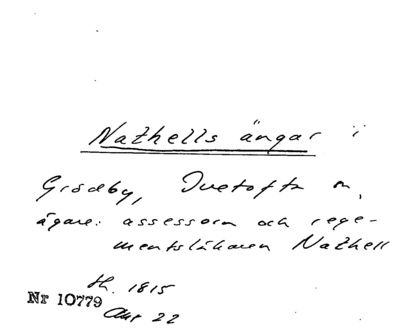 Nathells ängar i
Grödby, Ivetofta sn,
ägare: assessorn och rege-
mentsläkaren Nathell
th. 1815
Nr 10779
Akt 22